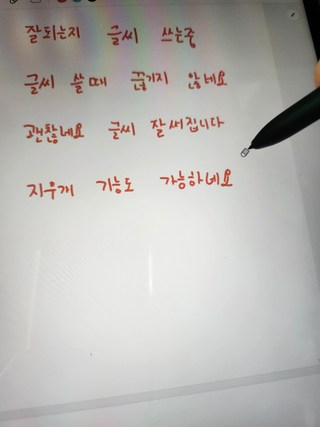 잘되는지 글씨 쓰는중
글씨 쓸때 끊기지 않네요
괜찮네요 글씨 잘써집니다
지우개 기능도 가능하네요